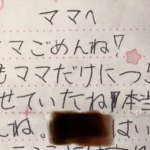 ママへ
ママごめんね
ママだけにつ
せていたね 本当
んね。 はい